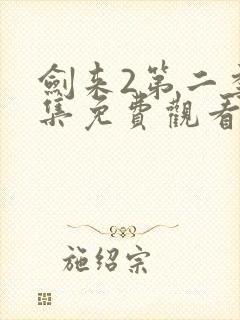 劍来2第二季
集免費觀看
施绍宗